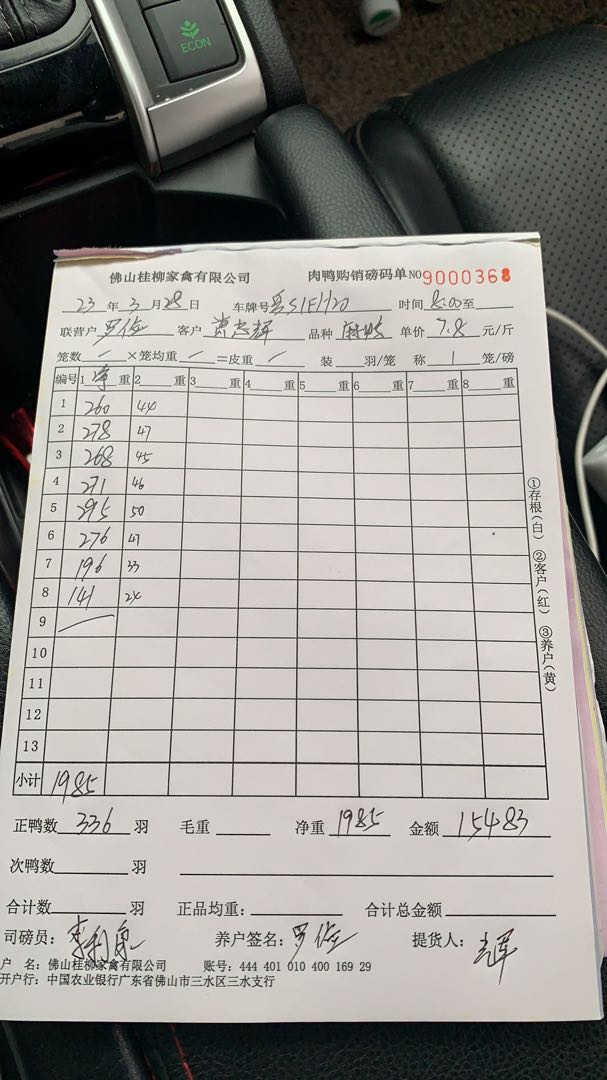 ECON
佛山桂柳家禽有限公司 肉鸭购销磅码单 NO 9000368
23 年 3 月 28 日 车牌号 粤S1F1H20 时间 8:00 至
联营户 罗俭 客户 志辉 品种 单价 7.8 元/斤
笼数 / ×笼均重 / =皮重 / 装 羽/笼 称 1 笼/磅
编号 1 净 重 2 重 3 重 4 重 5 重 6 重 7 重 8 重
1 260 44
2 278 47
3 268 45
4 271 46
5 295 50
6 276 47
7 196 33
8 141 24
9
10
11
12
13
小计 1985
①存根(白) ②客户(红) ③养户(黄)
正鸭数 336 羽 毛重 净重 1985 金额 15483
次鸭数 羽
合计数 羽 正品均重: 合计总金额
司磅员: 养户签名: 罗俭 提货人:
户 名: 佛山桂柳家禽有限公司 账号: 444 401 010 400 169 29
开户行: 中国农业银行广东省佛山市三水区三水支行